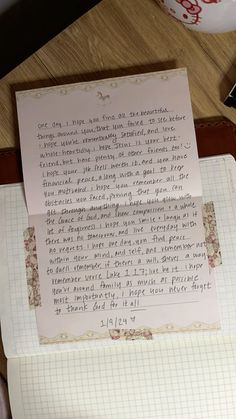 one day I hope you find all the beautiful
things around you, that you forced to see before
I hope you're romantically satisfied, and love
whole-heartedly. I hope is your best
friend, but have plenty of other friends too! :)
I hope your job feels worth it, and you have
financial peace, along with a goal to keep
you motivated. I hope you remember all the
obstacles you faced, proving that you can
get through anything. I hope you glow with
the Grace of God, and have compassion + a whole
lot of forgiveness. I hope you smile + laugh as if
there was no tomorrow, and live everyday with
no regrets. I hope one day, you find peace
within your mind, and self, and remember not
to dwell. remember, if there's a will, there's a way.
remember verse Luke 1:37; live by it. I hope
you're around family as much as possible
most importantly, I hope you never forget
to thank God for it all.
1/9/24